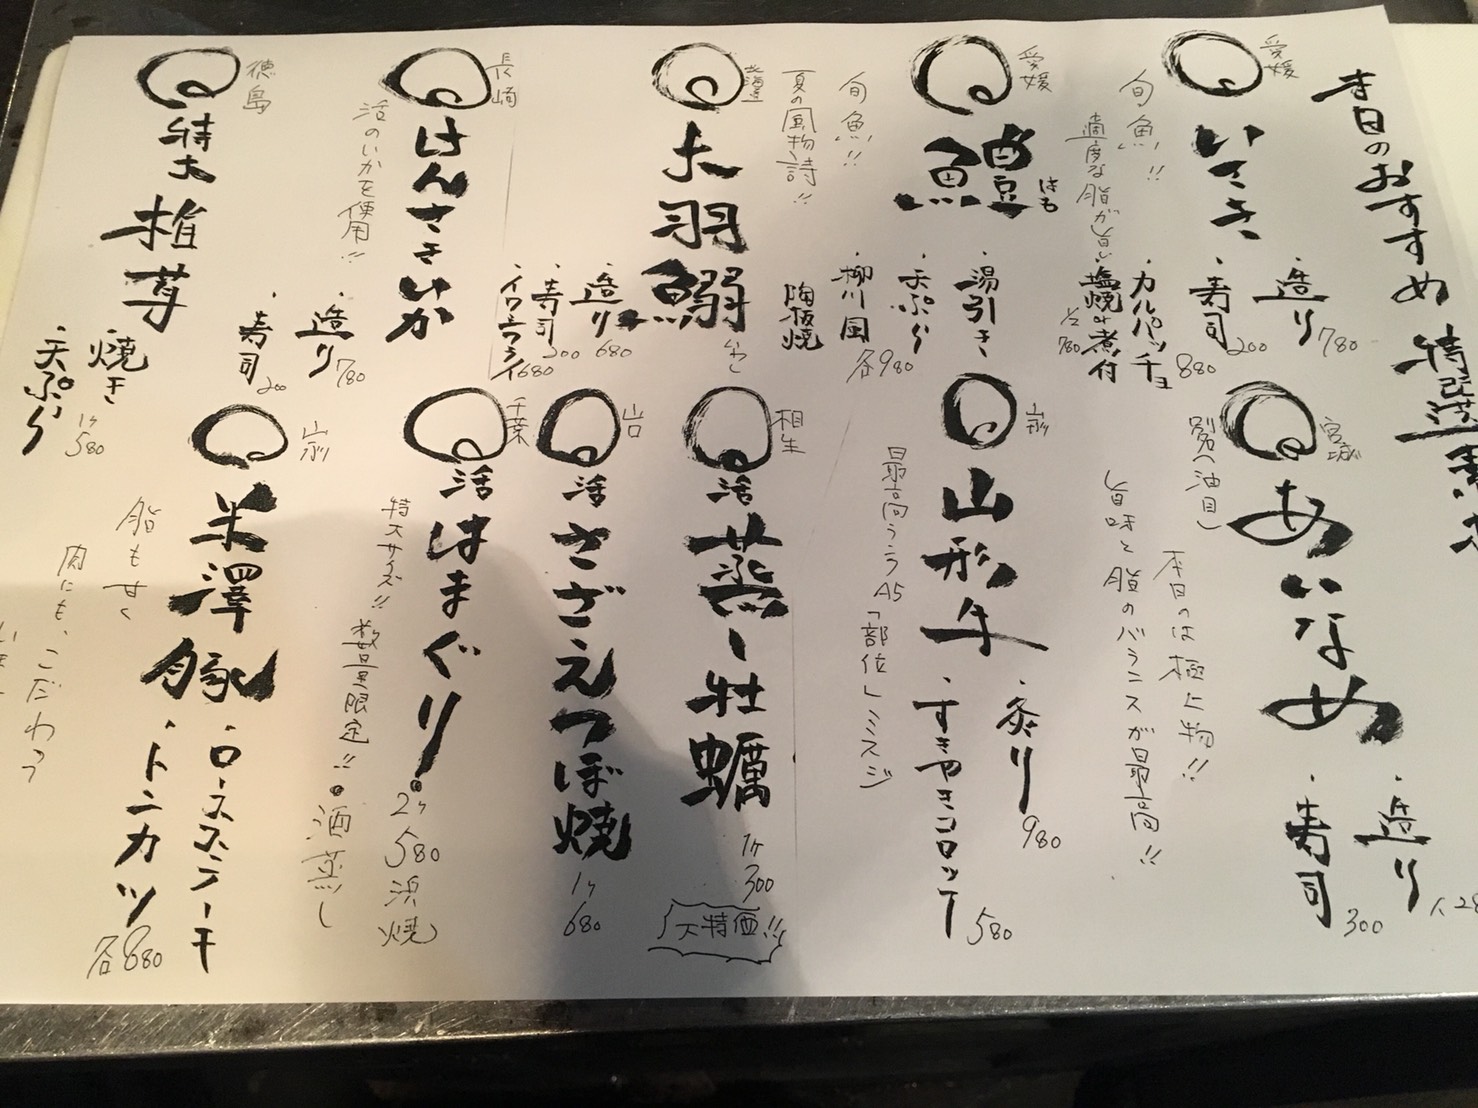 本日のおすすめ
愛媛
いさき
旬魚!!
適度な脂が旨い
・造り 780
・寿司 200
・カルパッチョ 880
・塩焼き 煮付
1/2 780
愛媛
鱧
はも
旬魚!!
夏の風物詩!!
・湯引き
・天ぷら
・柳川風
陶板焼
各980
北海道
大羽鰯
いわし
・造り 680
・寿司 200
・イワシフライ 680
長崎
けんさきいか
活のいかを使用!!
・造り 780
・寿司 200
徳島
特大椎茸
・焼き
・天ぷら
1ヶ 580
宮城
あいなめ
別名(油目)
本日のは極上物!!
旨味と脂のバランスが最高!!
・造り
・寿司 300
山形
山形牛
最高ランクA5
「部位」ミスジ
・炙り 980
・すきやきコロッケ 580
相生
活
蒸し牡蠣
1ヶ 300
大特価!!
山口
活
さざえつぼ焼
1ヶ 680
千葉
活
はまぐり
2ヶ 580
浜焼
特大サイズ!! 数量限定!!
酒蒸し
山形
米澤豚
脂も甘く
肉にも、こだわっ
・ロースステーキ
・トンカツ
各880